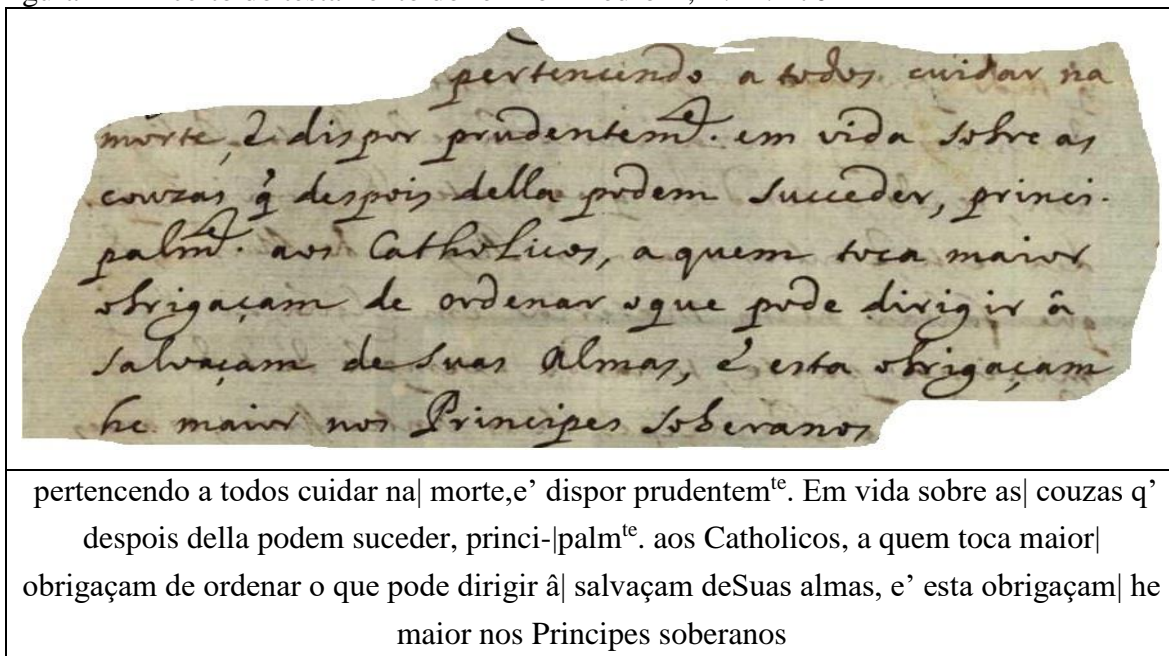 pertencendo a todos cuidar na
morte, é dispor prudentemᵉ. em vida sobre as
couzas q̃ despois della podem succeder, princi-
palmᵉ. aos Catholicos, a quem toca maior
obrigaçam de ordenar oque pode dirigir â
salvaçam de Suas Almas, é esta obrigaçam
he maior nos Principes Soberanos
pertencendo a todos cuidar na| morte,e’ dispor prudentemᵗᵉ. Em vida sobre as| couzas q’
despois della podem suceder, princi-|palmᵗᵉ. aos Catholicos, a quem toca maior|
obrigaçam de ordenar o que pode dirigir â| salvaçam deSuas almas, e’ esta obrigaçam| he
maior nos Principes soberanos